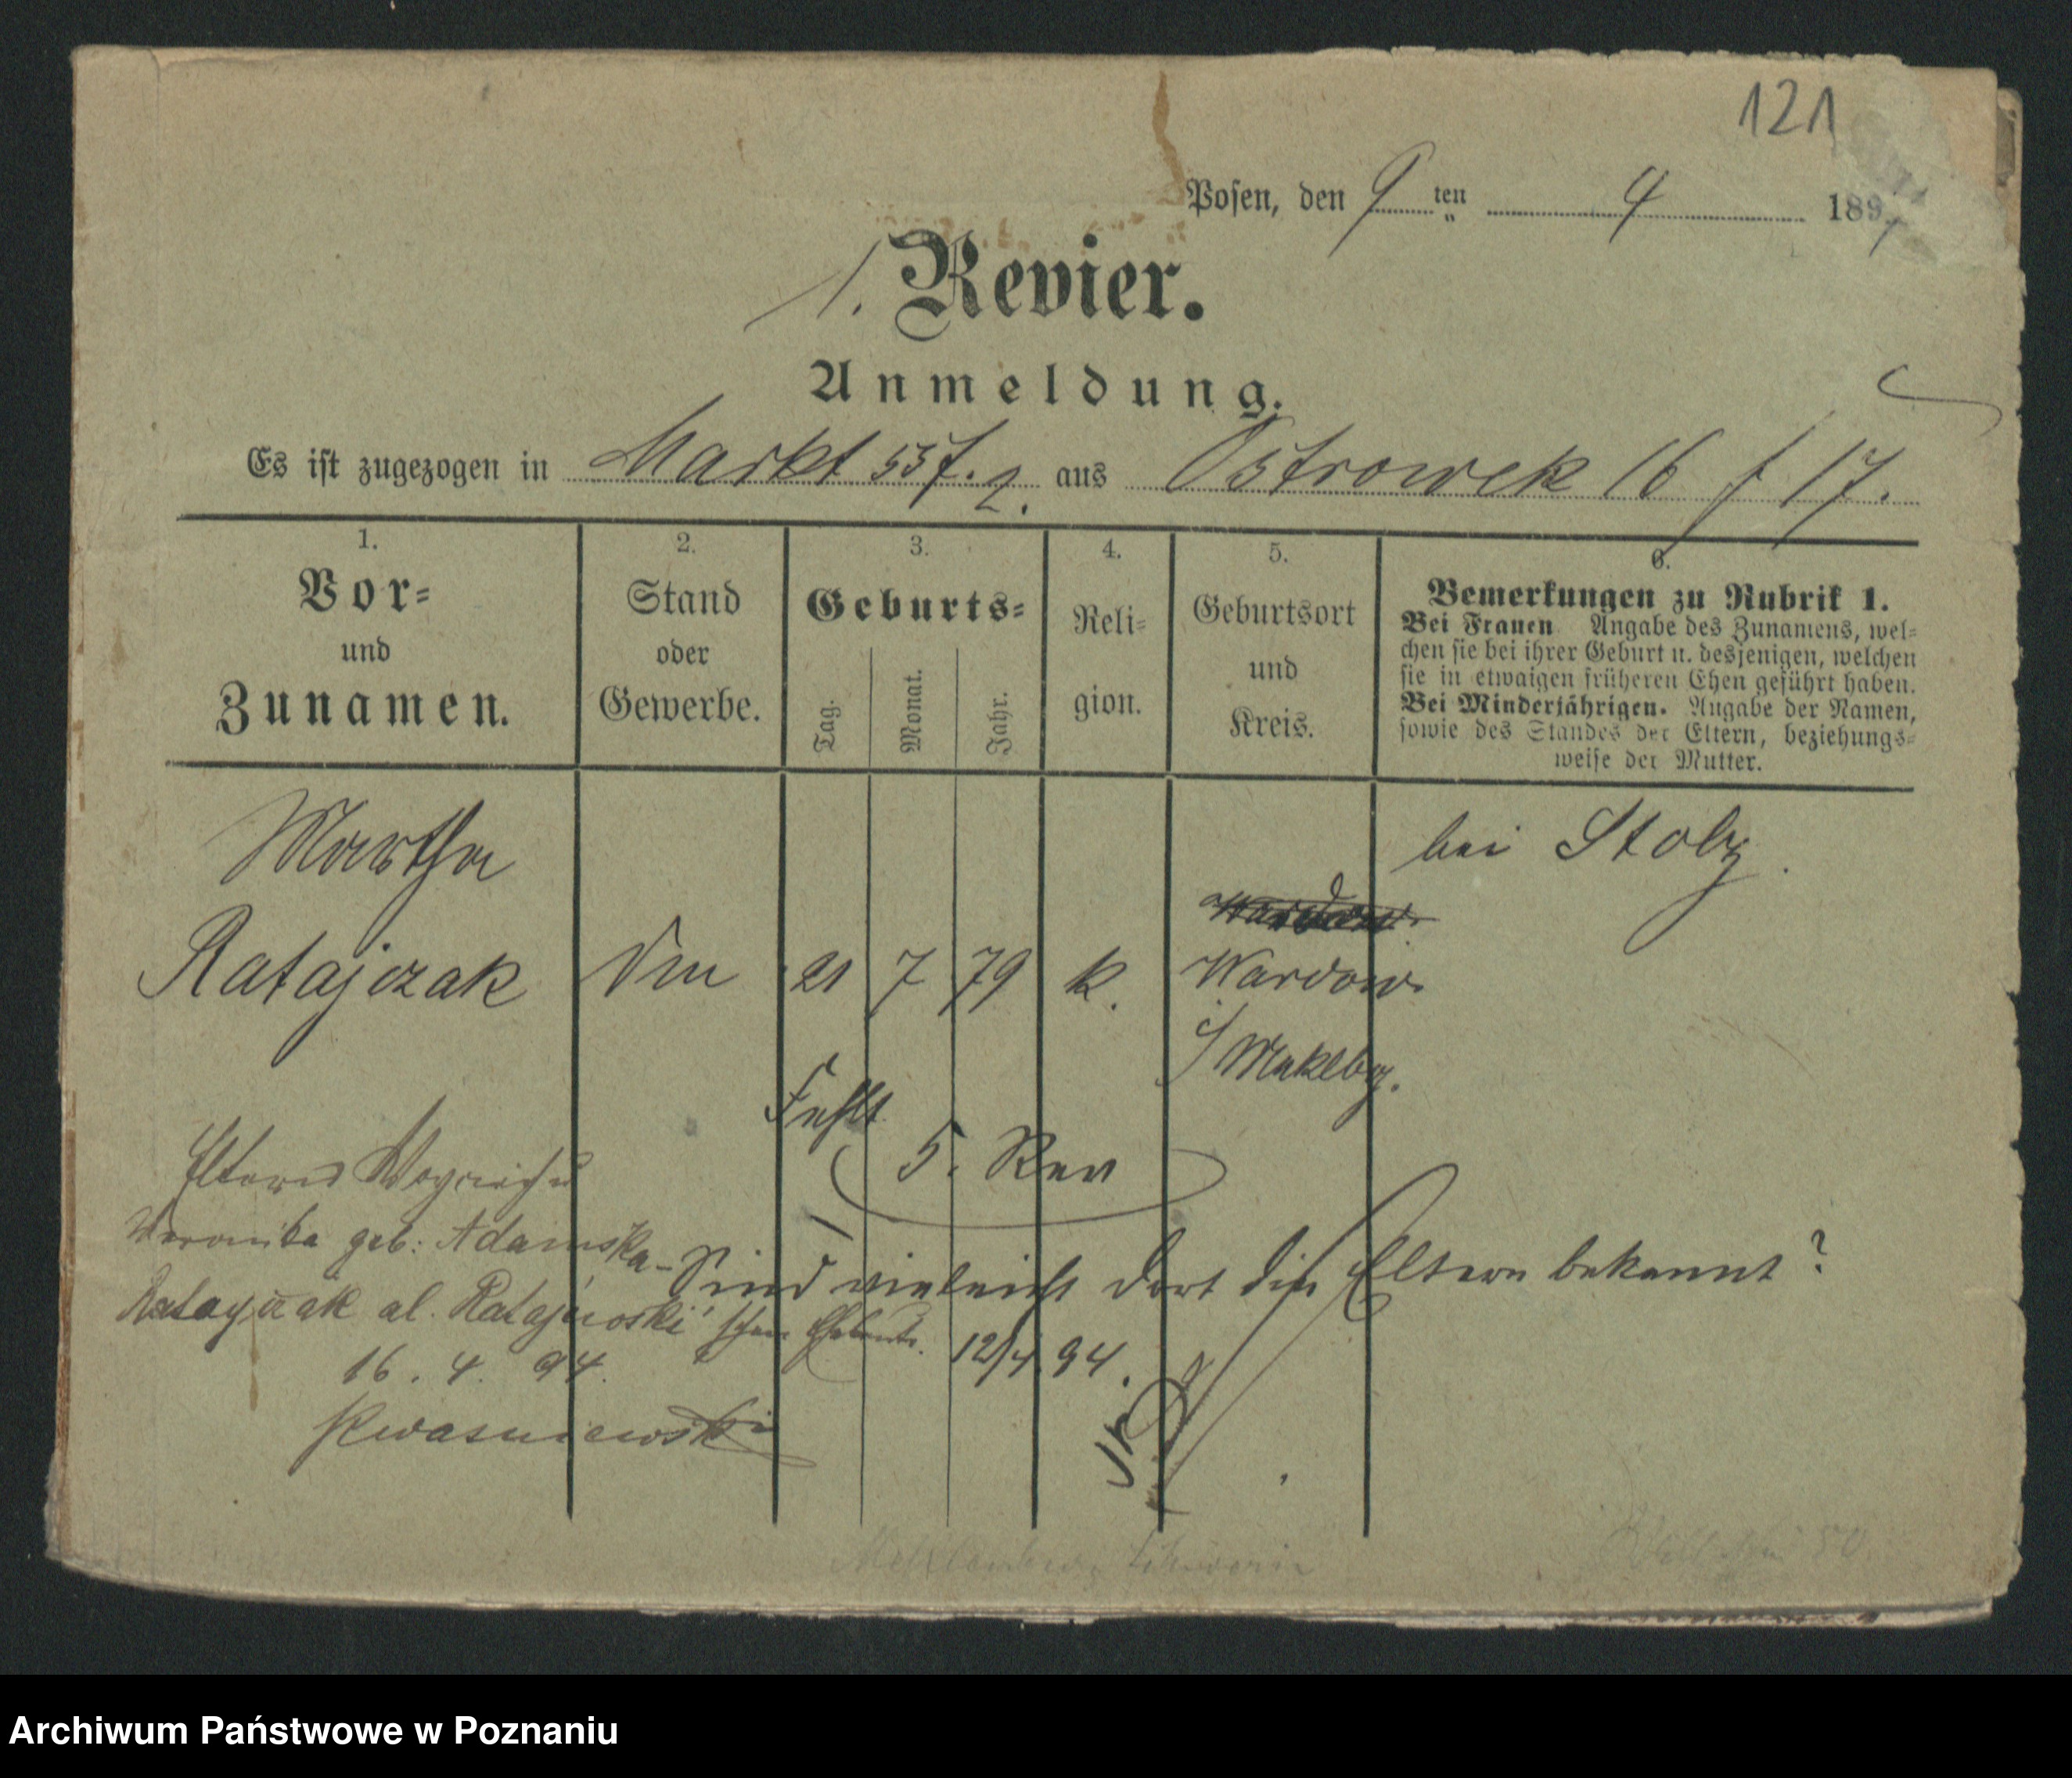 121
Posen, den 9 ten 4 189
1. Revier.
Anmeldung.
Es ist zugezogen in Markt 55 f. 2. aus Ostrowek 16 f 17.
1. 2. 3. 4. 5. 6.
Vor- und Zunamen.
Stand oder Gewerbe.
Geburts-
Tag. Monat. Jahr.
Reli-
gion.
Geburtsort
und
Kreis.
Bemerkungen zu Rubrik 1.
Bei Frauen Angabe des Zunamens, wel-
chen sie bei ihrer Geburt u. desjenigen, welchen
sie in etwaigen früheren Ehen geführt haben.
Bei Minderjährigen. Angabe der Namen,
sowie des Standes der Eltern, beziehungs-
weise der Mutter.
bei Stolz.
Martha
Ratajczak 21 7 79 k. Wardow
i/ Meklbg.
Fehlt
5. Rev
Sind vieleicht dort die Eltern bekannt?
12/4. 94.
Eltern
Veronika geb. Adamska
Ratayczak al. Ratajcoski'schen Eheleute.
16. 4. 94.
Kwasniewski
Mecklenburg Schwerin
Archiwum Państwowe w Poznaniu